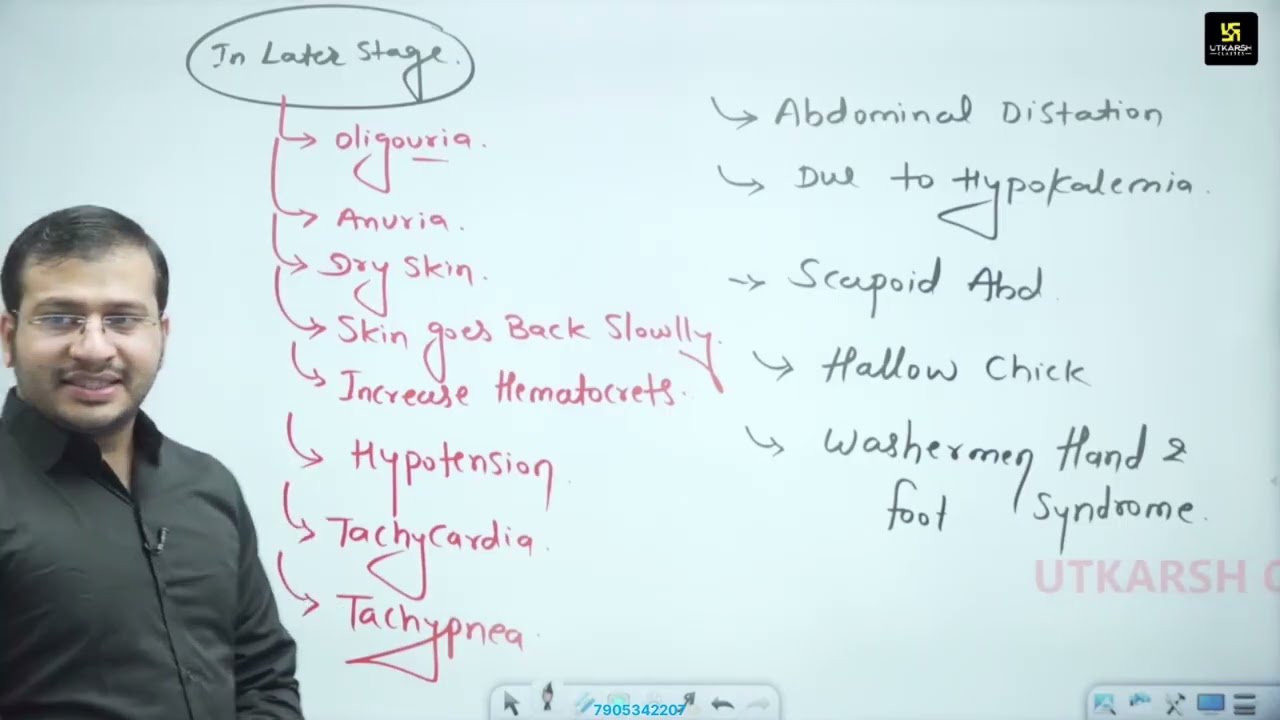 In Later Stage.
Oligouria.
Anuria.
Dry Skin.
Skin goes Back Slowlly.
Increase Hematocrets.
Hypotension
Tachycardia.
Tachypnea
Abdominal Distation
Due to Hypokalemia.
Scapoid Abd
Hallow Chick
Washermen Hand &
foot Syndrome.
UTKARSH
CLASSES
UTKARSH C
7905342207